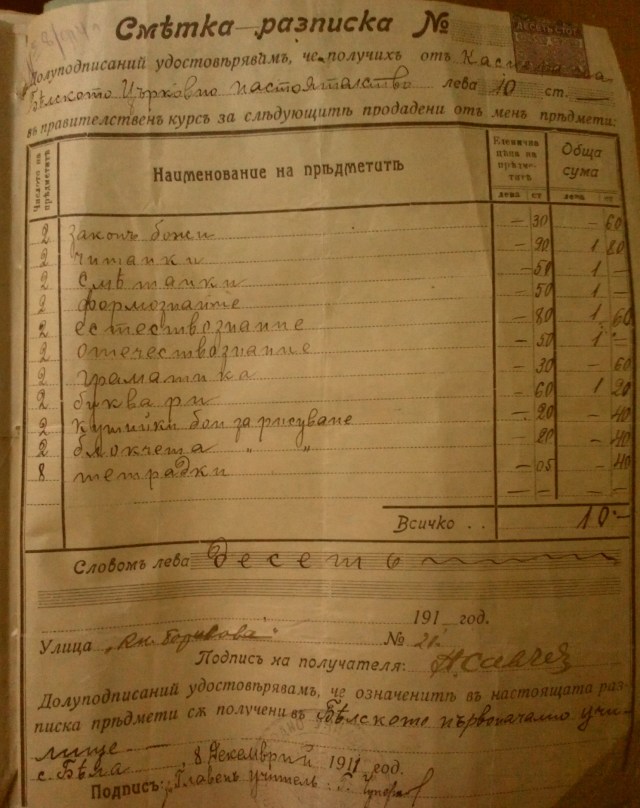 Смѣтка-разписка №
Долуподписаний удостовѣрявамъ, че получихъ отъ
Бѣлското Църковно настоятелство лева 10 ст. —
въ правителственъ курсъ за слѣдующитѣ продадени отъ менъ прѣдмети:
Числото на прѣдметитѣ Наименование на прѣдметитѣ Единична цѣна на прѣдметитѣ Обща сума
лева ст лева ст
2 законъ божи — 30 — 60
2 читанки — 90 1 80
2 смѣтанки — 50 1 —
2 формознание — 50 1 —
2 естествознание — 80 1 60
2 отечествознание — 50 1 —
2 граматика — 30 — 60
2 буквари — 60 1 20
2 кутийки бои за рисуване — 20 — 40
2 блокчета " " — 20 — 40
8 тетрадки — 05 — 40
— — — —
Всичко . . 10 —
Словомъ лева десетъ
191 год.
Улица „Кн. Борисова" № 21
Подпись на получателя:
Долуподписаний удостовѣрявамъ, че означенитѣ въ настоящата раз-
писка прѣдмети сѫ получени въ Бѣлското първоначално учи-
лище —
с. Бѣла, 8 Декемврий 1911 год.
Подпись: Главенъ учитель: